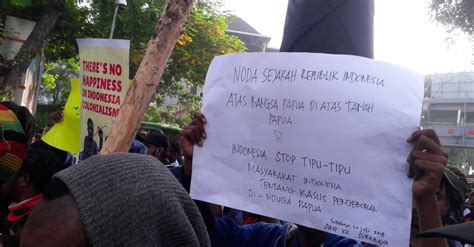 THERE'S NO
HAPPINESS
IN INDONESIAN
COLONIALISM
NODA SEJARAH REPUBLIK INDONESIA
ATAS BANGSA PAPUA DI ATAS TANAH
PAPUA
&
INDONESIA STOP TIPU-TIPU
MASYARAKAT INDONESIA
TENTANG KASUS PENGEBOMAN
DI - NDUGA PAPUA
AMP KK SURABAYA